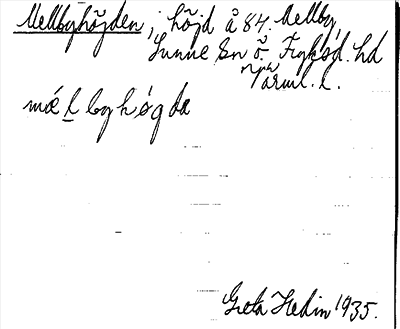 Mellbyhöjden, höjd å 84. Mellby
Sunne sn Ö. Fryksd. hd
Värml. l.
mæl byhøgda
Greta Hedin 1935.